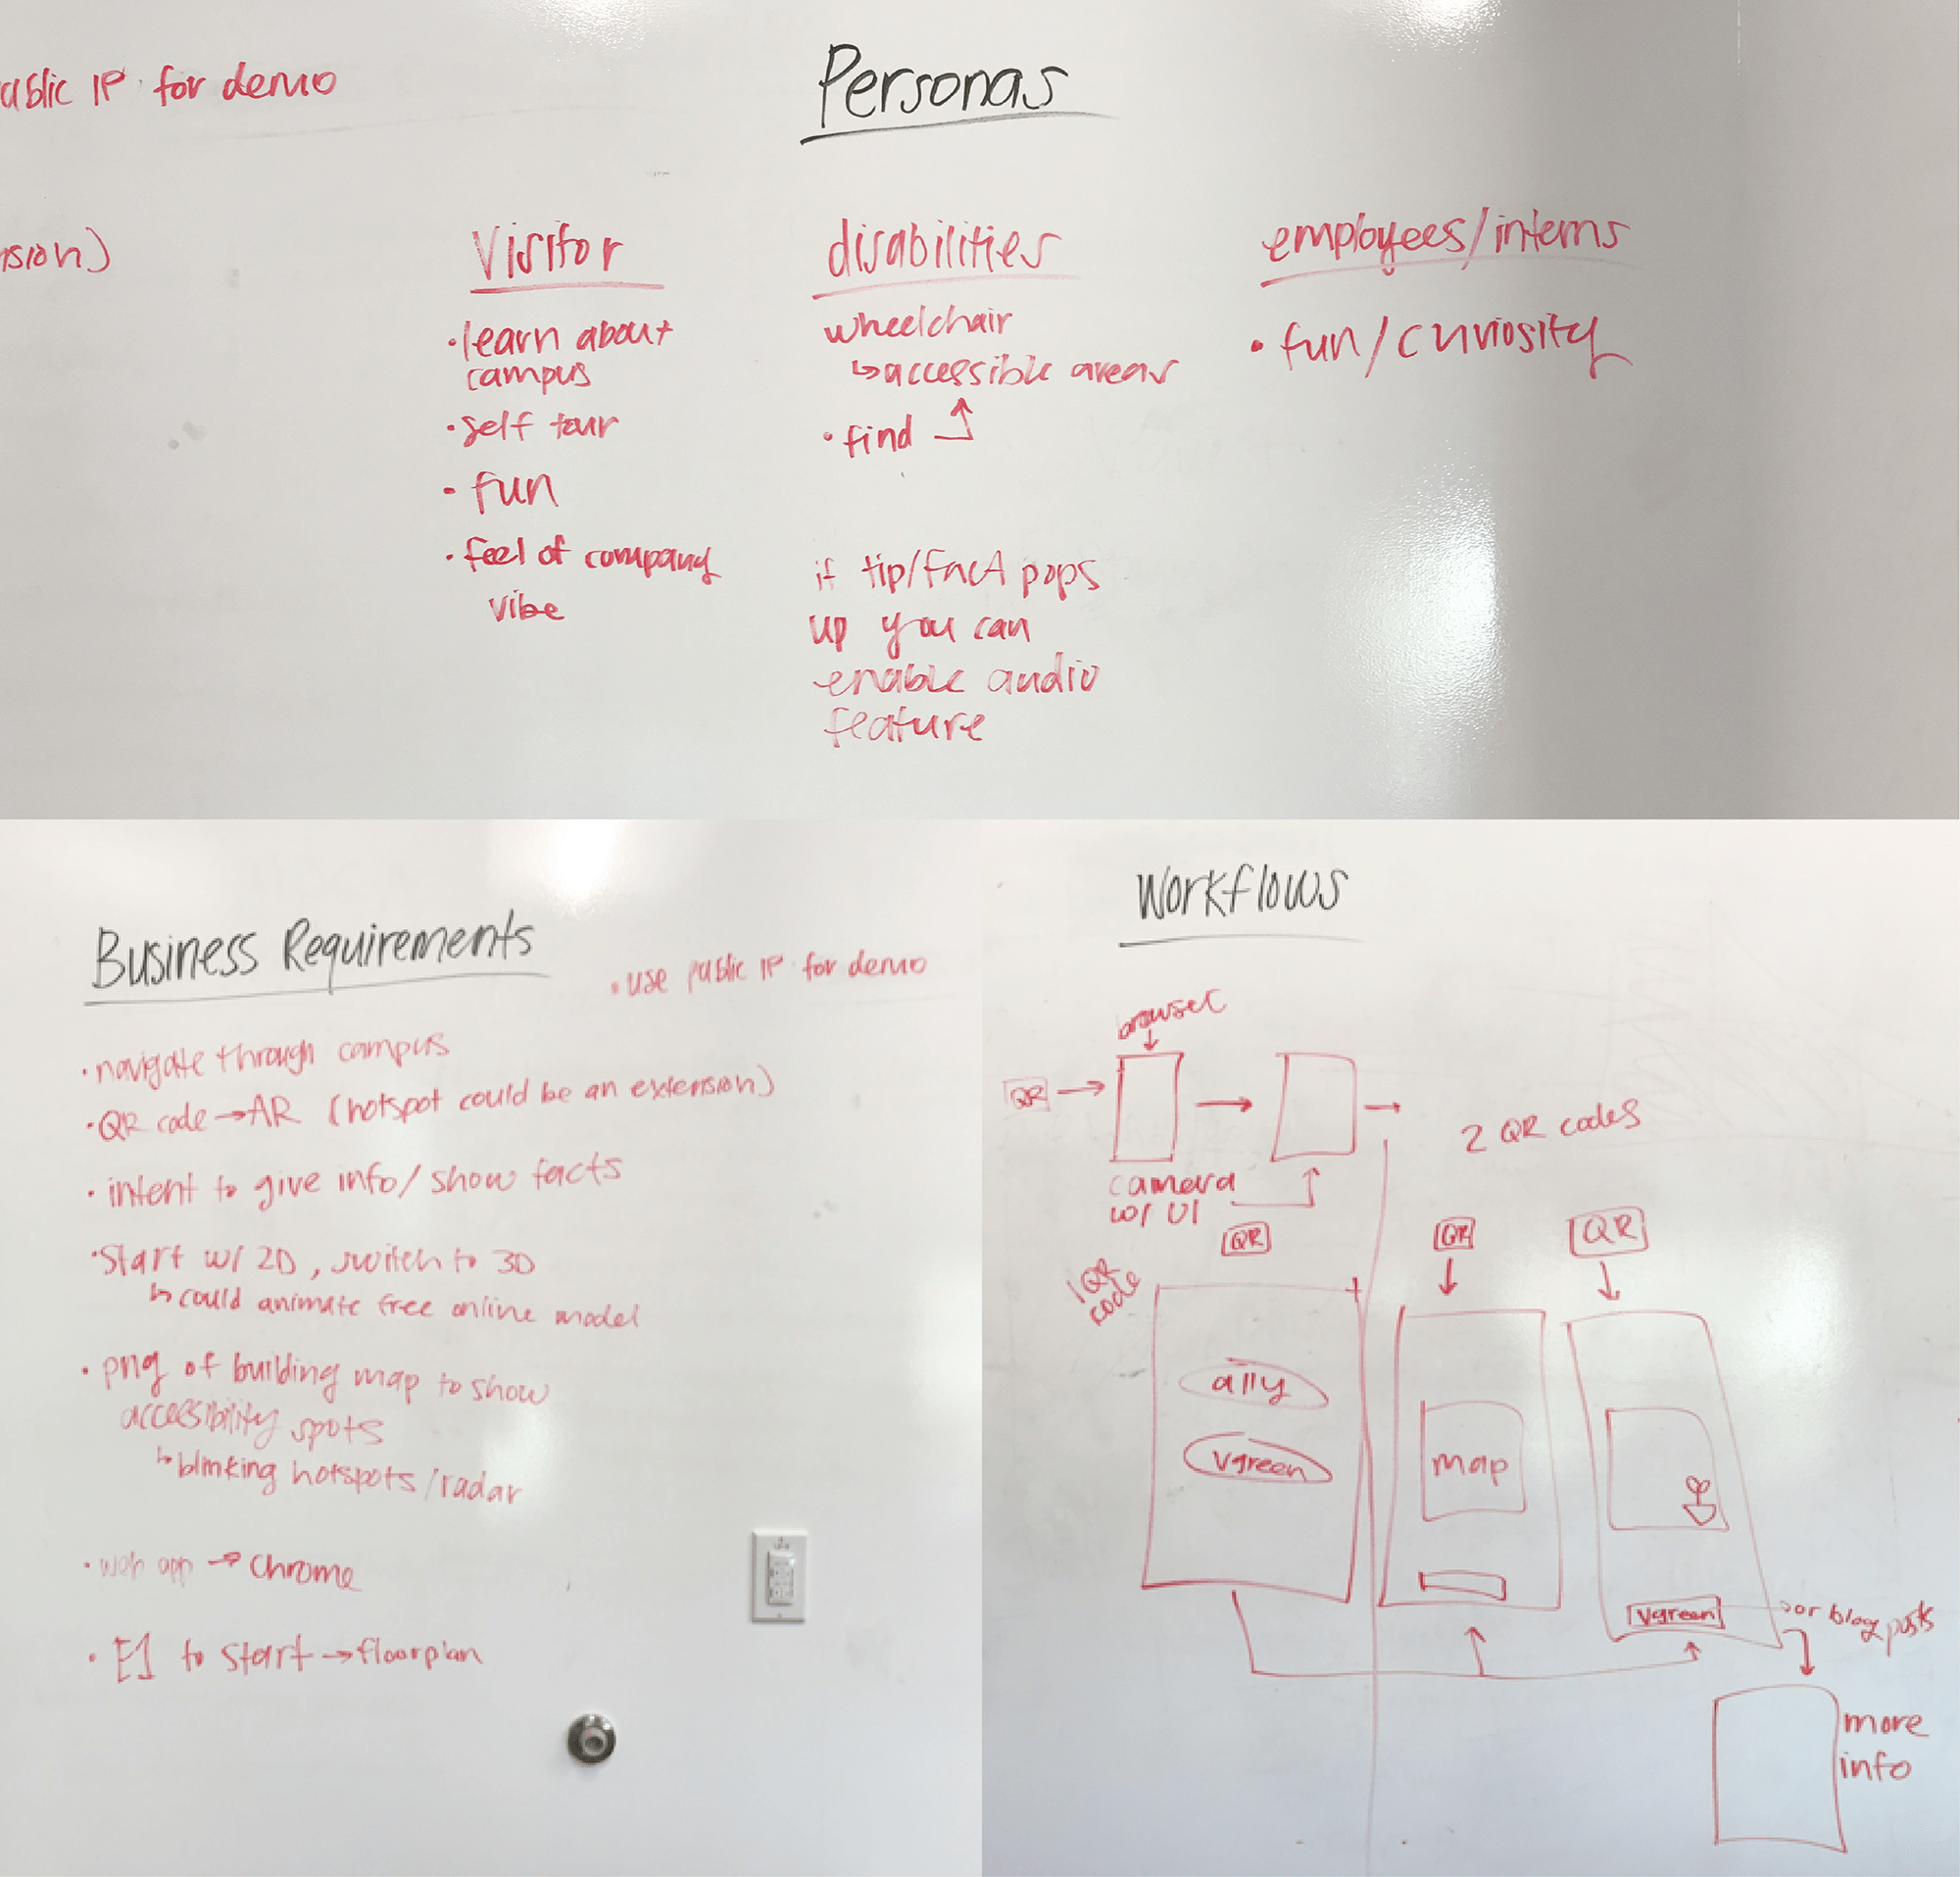 ublic IP for demo
Personas
nsion)
Visitor
• learn about
campus
• self tour
• fun
• feel of company
vibe
disabilities
wheelchair
↳ accessible areas
• find
if tip/fact pops
up you can
enable audio
feature
employees/interns
• fun/curiosity
Business Requirements
• use public IP for demo
• navigate through campus
• QR code → AR (hotspot could be an extension)
• intent to give info/show facts
• Start w/ 2D, switch to 3D
↳ could animate free online model
• png of building map to show
accesibility spots
↳ blinking hotspots/radar
• web app → Chrome
• E1 to start → floorplan
Workflows
browser
QR →
camera
w/ UI
2 QR codes
1 QR
code
QR
QR
QR
a11y
vgreen
map
vgreen
or blog posts
more
info